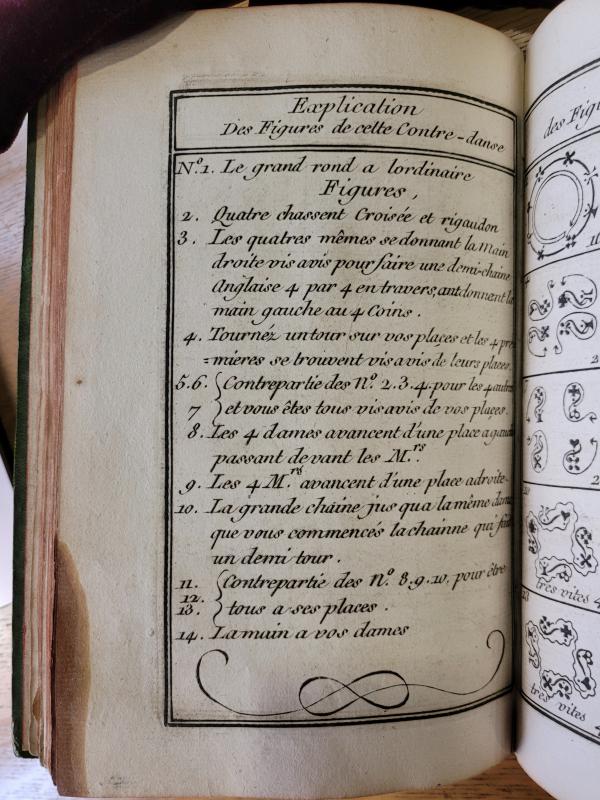 Explication
Des Figures de cette Contre-danse
Nº.1. Le grand rond a lordinaire
Figures,
2. Quatre chassent Croisée et rigaudon
3. Les quatres mêmes se donnant la Main
droite vis avis pour faire une demi-chaine
Anglaise 4 par 4 en travers, ant donnent la
main gauche au 4 Coins.
4. Tournéz un tour sur vos places et les 4 pre
=mieres se trouvent vis avis de leurs places.
5.6. { Contrepartie des Nº. 2.3.4. pour les 4 autres
7 } et vous êtes tous vis avis de vos places.
8. Les 4 dames avancent d'une place a gauche
passant devant les M.rs
9. Les 4 M.rs avancent d'une place adroite-
10. La grande chaine jus qua la même dame
que vous commencés la chainne qui fait
un demi tour.
11. { Contrepartie des Nº 8.9.10. pour être
12.
13. } tous a ses places.
14. La main a vos dames
des Figu
2
2
très vites 4
13
très vites 4